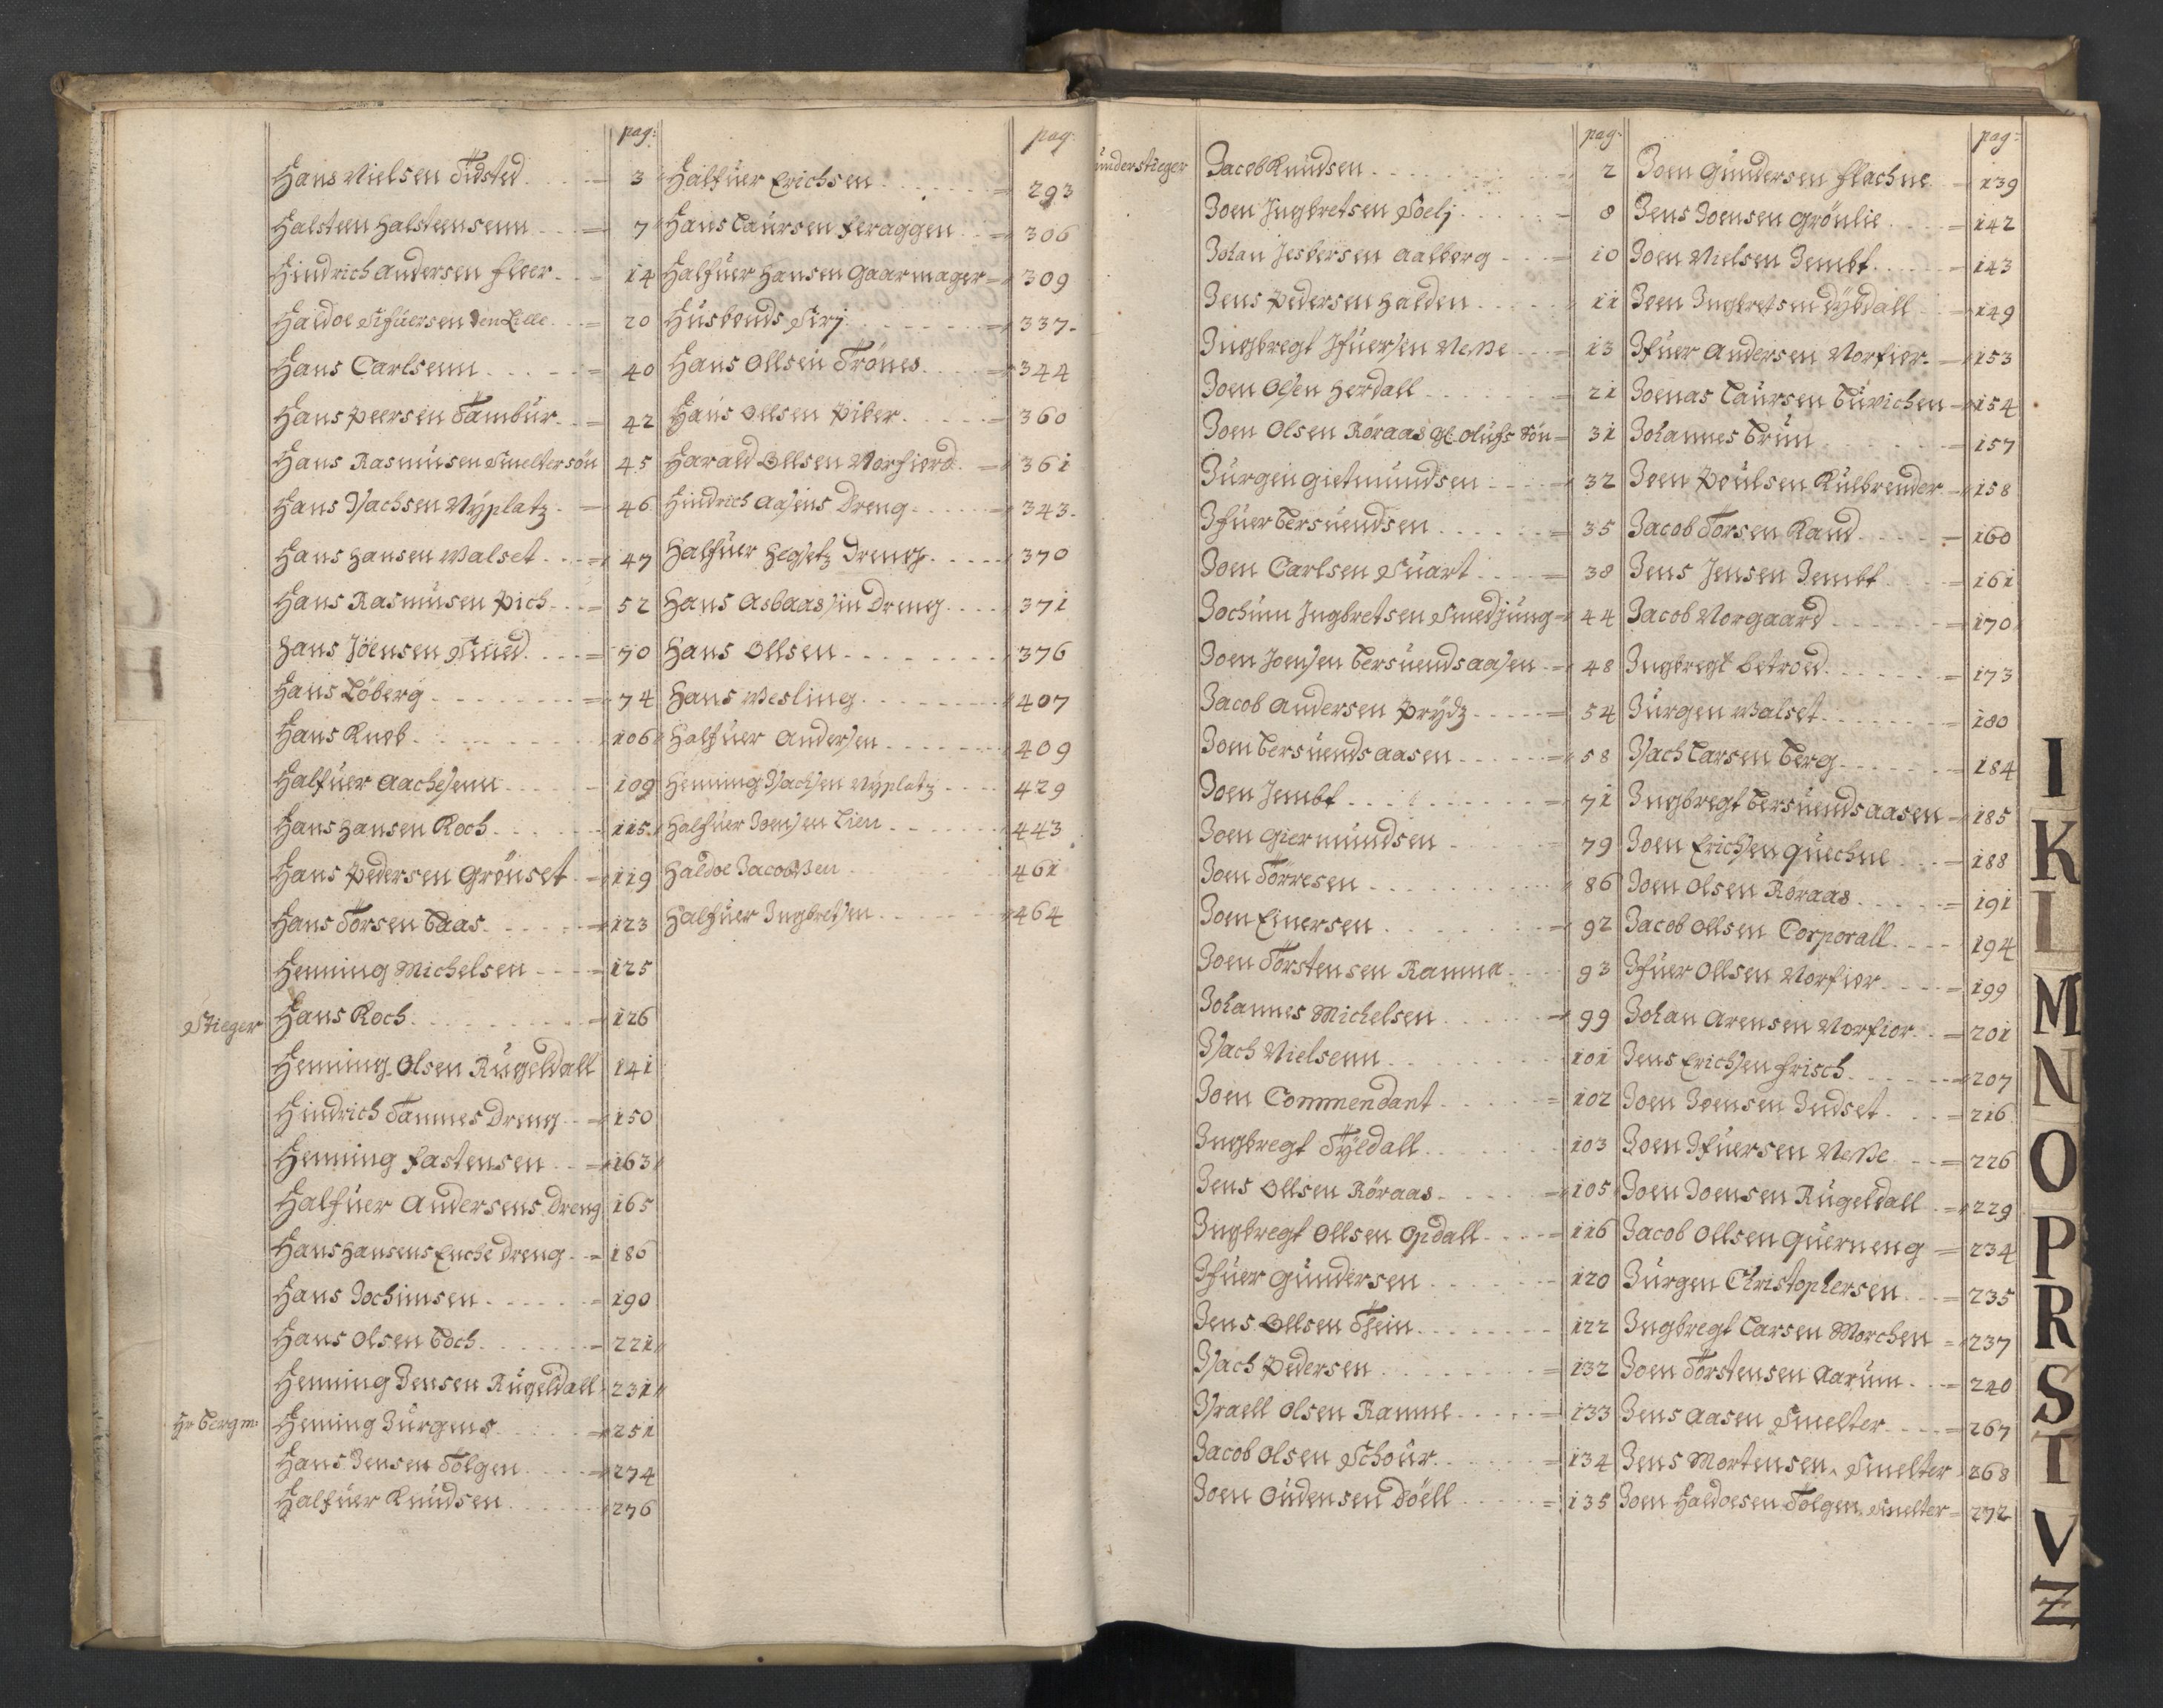 pag:
Hans Nielsen Tidsted 3
Halsteen Halsteensenn 7
Hindrich Andersen Floer 14
Haldoe Sifuersen den Lille 20
Hans Carlsenn 40
Hans Peersen Tambur 42
Hans Rasmusen Smeltersøn 45
Hans Isachsen Nÿplatz 46
Hans Hansen Walset 47
Hans Rasmusen Pich 52
Hans Joensen Smed 70
Hans Löberg 74
Hans Kneb 106
Halfuer Aachesenn 109
Hans Hansen Koch 115
Hans Pedersen Grönset 119
Hans Torsen Baas 123
Henning Michelsen 125
Stieger Hans Koch 126
Henning Olsen Rugeldall 141
Hindrich Tammes Dreng 150
Henning Fastensen 163
Halfuer Andersens Dreng 165
Hans Hansens Enche Dreng 186
Hans Jochimsen 190
Hans Olsen Boch 221
Henning Jensen Rugeldall 231
Hr Bergm: Henning Jürgens 251
Hans Jensen Tolgen 274
Halfuer Knudsen 276
pag:
Halfuer Erichsen 293
Hans Laursen Feraggen 306
Halfuer Hansen Gaarmager 309
Husbonds Sirj 337
Hans Ollsen Trönes 344
Hans Ollsen Piber 360
Harald Ollsen Norfiord 361
Hindrich Aasens Dreng 343
Halfuer Hegsetz Dreng 370
Hans Asbaasin Dreng 371
Hans Ollsen 376
Hans Wesling 407
Halfuer Andersen 409
Henning Isachsen Nÿplatz 429
Halfuer Joensen Lien 443
Haldoe Jacobsen 461
Halfuer Ingbretsen 464
pag:
understieger Jacob Knudsen 2
Joen Ingbretsen Soelj 8
Johan Jesbersen Aalborg 10
Jens Pedersen Halden 11
Ingbregt Ifuersen Nesse 13
Joen Olsen Herdall 21
Joen Olsen Röraas Gl Olufs Søn 31
Jürgen Gietmundsen 32
Ifuer Bersuendsen 35
Joen Carlsen Suart 38
Jochum Ingbretsen Smedjung 44
Joen Joensen Bersuendsaasen 48
Jacob Andersen Prÿdz 54
Joen Bersuendsaasen 58
Joen Jembt 71
Joen Giermundsen 79
Joen Törresen 86
Joen Einersen 92
Joen Törstensen Ramme 93
Johannes Michelsen 99
Isach Nielsenn 101
Joen Commendant 102
Ingbregt Tÿldall 103
Jens Ollsen Röraas 105
Ingbregt Ollsen Opdall 116
Ifuer Gundersen 120
Jens Ollsen Thein 122
Isach Pedersen 132
Israell Olsen Ramme 133
Jacob Olsen Schour 134
Joen Oudensen Döell 135
pag:
Joen Gundersen Flachne 139
Jens Joensen Grönlie 142
Joen Nielsen Jembt 143
Joen Ingbretsen Dÿbdall 149
Ifuer Andersen Norfior 153
Joenas Laursen Burichen 154
Johannes Brun 157
Joen Poulsen Kulbrender 158
Jacob Torsen Rand 160
Jens Jensen Jembt 161
Jacob Norgaard 170
Ingbregt Betroed 173
Jürgen Walset 180
Isach Larsen Berg 184
Ingbregt Bersuendsaasen 185
Joen Erichsen Quechne 188
Joen Olsen Röraas 191
Jacob Ollsen Corporall 194
Ifuer Ollsen Norfior 199
Johan Arensen Norfior 201
Jens Erichsen Frisch 207
Joen Joensen Indset 216
Joen Ifuersen Nesse 226
Joen Joensen Rugeldall 229
Jacob Ollsen Querneng 234
Jürgen Christophersen 235
Ingbregt Larsen Morchen 237
Joen Torstensen Aarum 240
Jens Aasen Smelter 267
Jens Mortensen Smelter 268
Joen Haldoesen Tolgen Smelter 272
I
K
L
M
N
O
P
R
S
T
V
Z